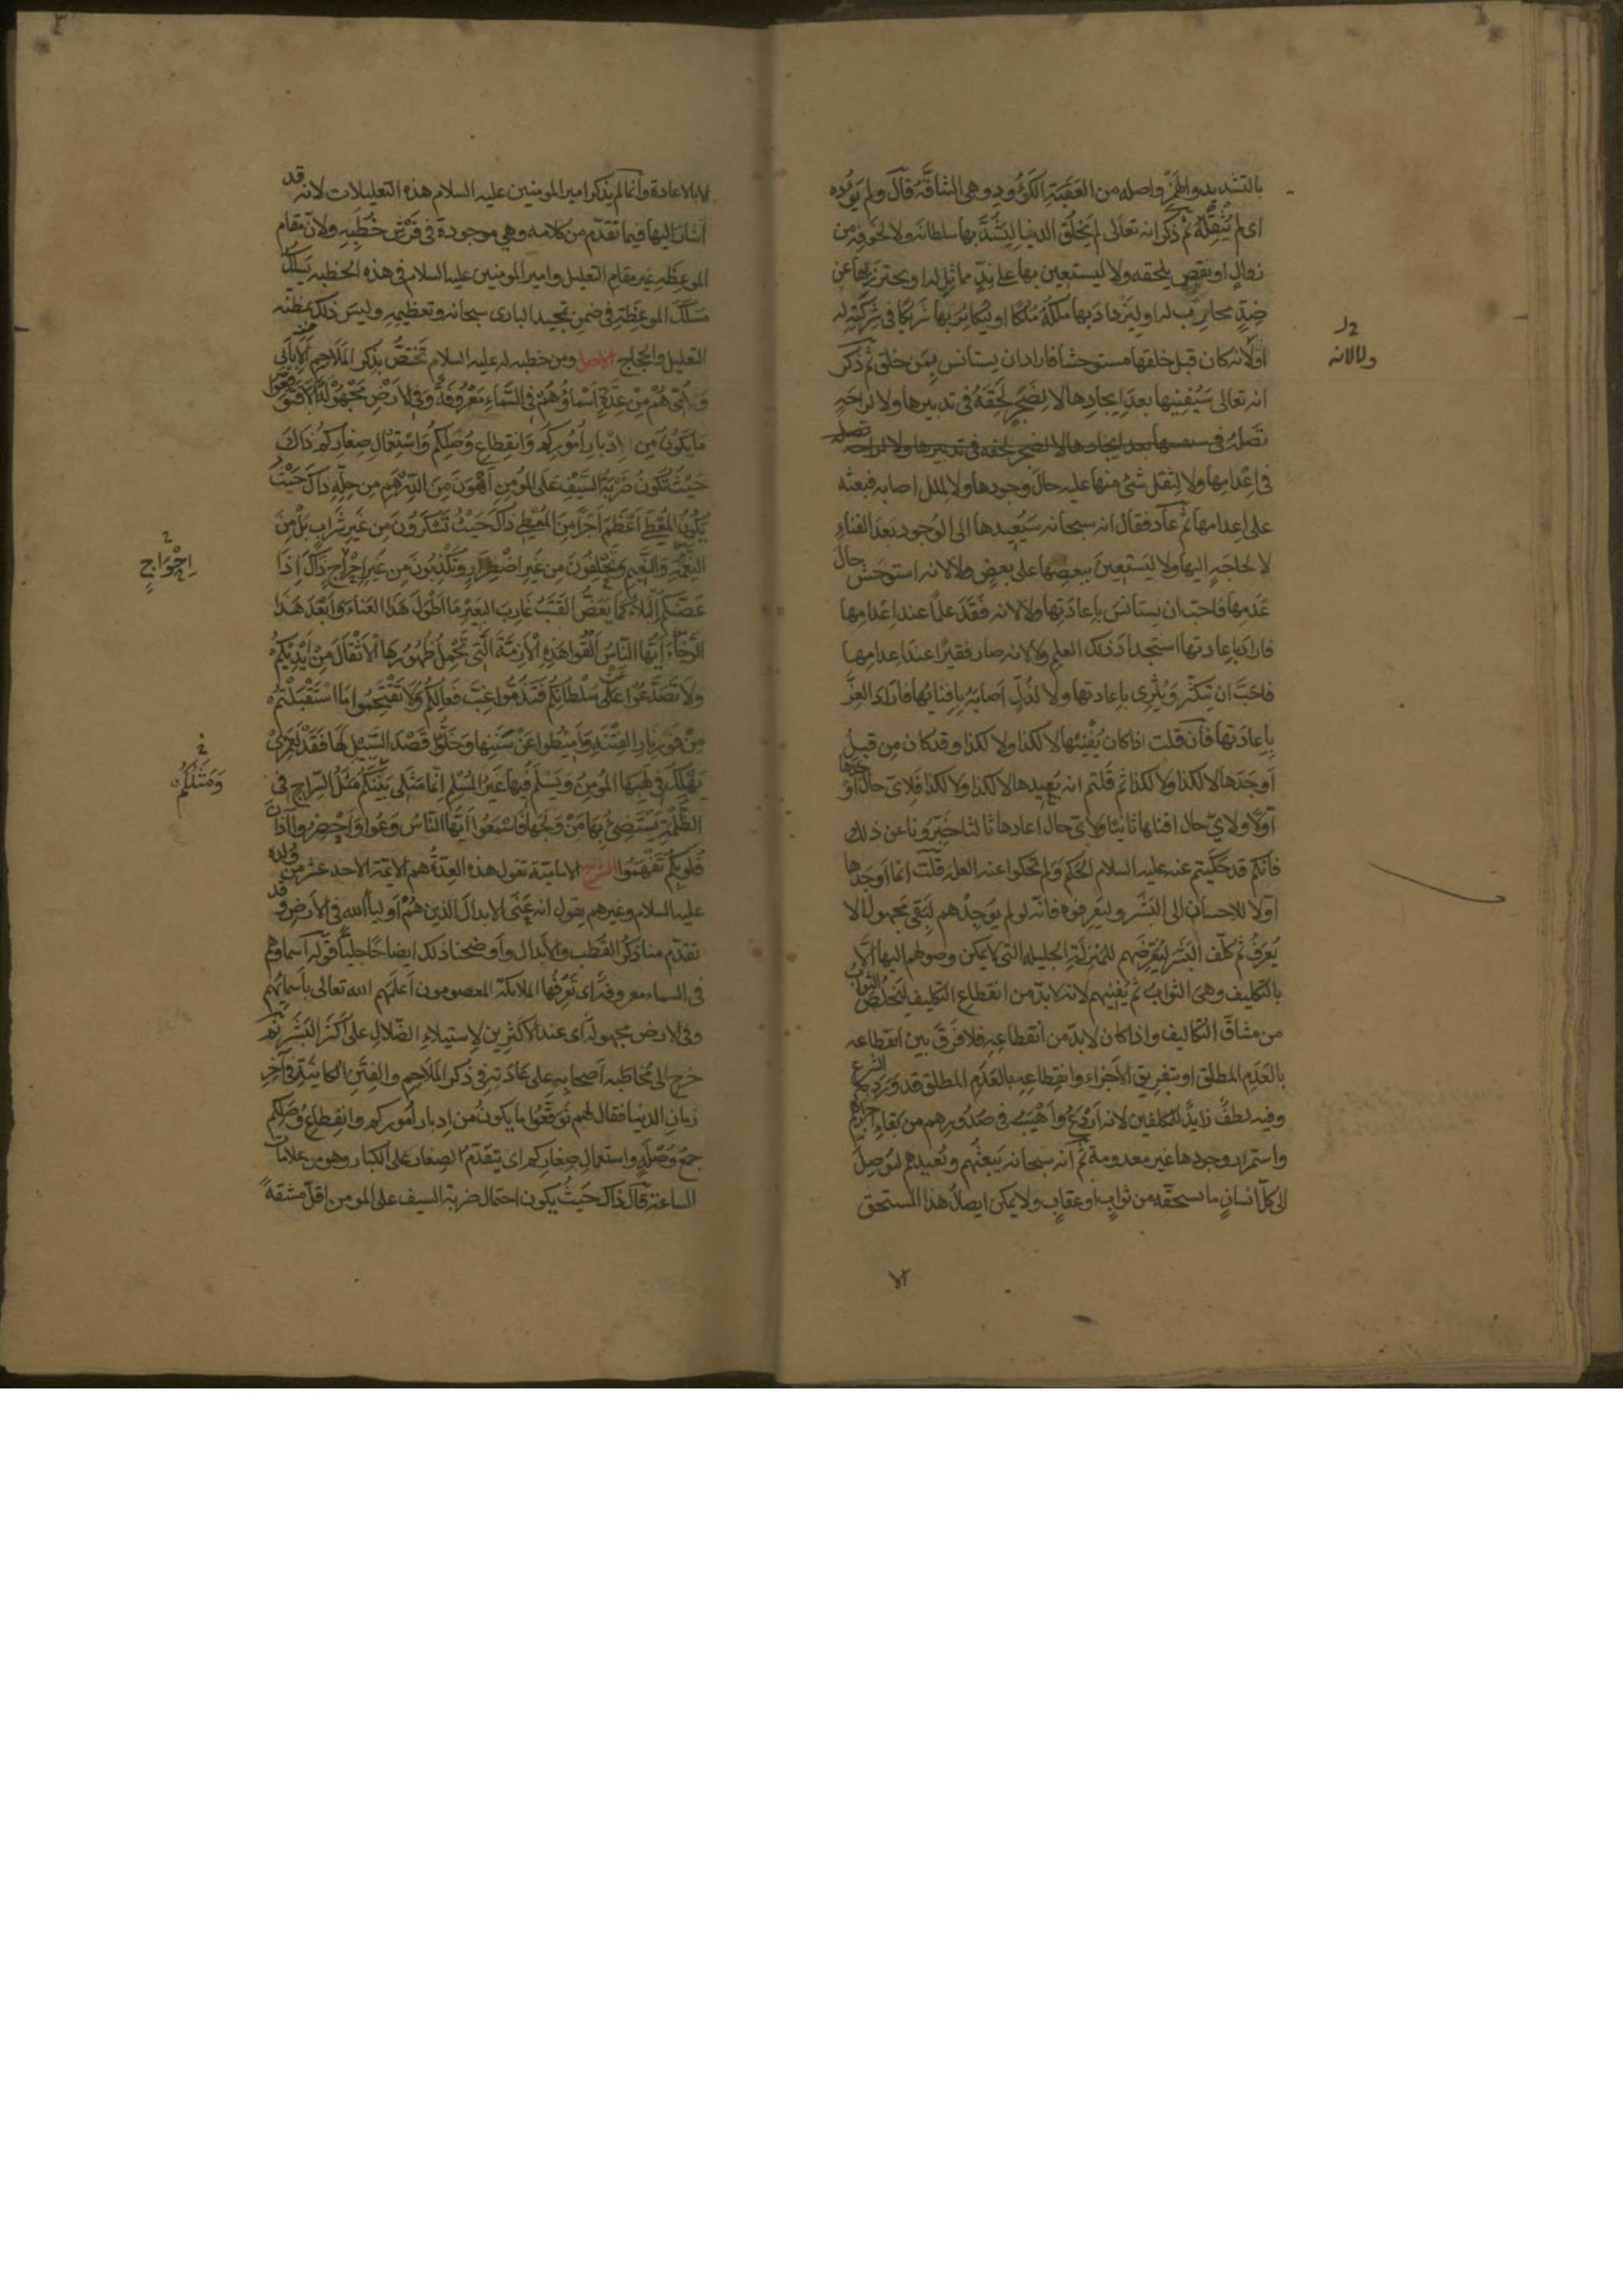 بالتشديد والهمز واصله من العَقَبَةِ الكَؤُودِ وهى الشاقَّةُ قال ولم يَؤُده
اى لم يُثْقِلْهُ ثم ذكر انه تعالى لم يَخلُقِ الدنيا لِيَشُدَّ بها سلطانَه ولا لخوفِه من
زوالٍ او نقصٍ يلحقه ولا ليستعين بها على نِدٍّ مماثلٍ له او يحترز بها عن
ضِدٍّ محارِبٍ له او لِيَزدادَ بها مُلكَهُ مُلكًا او ليُكاثِرَ بها شريكًا فى شركتِه له
او لانه كان قبل خلقها مستوحشا فاراد ان يستانس بِمَن خلق ثم ذكر
انه تعالى سَيُفنِيها بعدَ اِيجادِها لا لِضَجَرٍ لَحِقَهُ فى تدبيرها ولا لراحَةٍ
تَصِلُه فى
فى اِعْدامِها ولا لِثِقَل شئ منها عليه حالَ وجودِها ولا لملل اصابه فبعثه
على اِعدامها ثم عاد فقال انه سبحانه سَيُعِيدها الى الوُجود بعدَ الفناءِ
لا لحاجَةٍ اليها ولا ليَستعِينَ ببعضِها على بعضٍ ولا لانه استوحَشَ حالَ
عَدَمِها فاحب ان يستانسَ بِاِعادَتِها ولا لانه فَقَدَ علمًا عند اِعْدامِها
فاراد بِاِعادتها استجدادَ ذلك العلم ولا لانه صار فقيرًا عند اعدامِها
فاحَبَّ ان يتكثَّر ويُثْرِى باعادتها ولا لذُلٍّ اَصابَهُ بِاِفنائِها فاراد العِزَّ
بِاِعادَتها فان قلت اذا كان يُفْنِيها لا لكذا ولا لكذا وقد كان من قبلُ
اَوجَدَها لا لكذا ولا لكذا ثم قُلتم انه يُعِيدها لا لكذا ولا لكذا فلاىّ حالٍ اَوجَدَها
اوّلًا ولاىّ حال افناها ثانيًا ولاىّ حال اعادها ثالثا خَبِّرُونا عن ذلك
فانكم قد حَكَيتم عنه عليه السلام الحُكم ولم تحكوا عنه العلة قلت انما اوجَدها
اوّلا للاِحسان الى البَشَر وليَعرِفوه فانّه لو لم يُوجِدْهم لبَقِى مجهولا لا
يُعرَفُ ثم كلّف البَشَر ليُعَرِّضَهم للمَنزِلَةِ الجليلة التى لا يمكن وصولهم اليها الا
بالتكليف وهى الثوابُ ثم يُفنِيهم لانه لا بدّ من انقطاع التكليف ليَخلُصَ الثوابُ
من مشاقّ التكاليف واذا كان لا بدّ من انقطاعِه فلا فَرقَ بين انقطاعه
بالعَدَمِ المطلق او بتفريق الاَجزاءِ وانقِطاعه بالعَدَمِ المطلق قد وَرَد به الشرع
وفيه لطفٌ زايدٌ للمكلفين لانه اَردَعُ واَهْيَبُ فى صُدُورهم من بَقاءِ اجزايهم
واستمرارِ وجودها غيرَ معدومة ثم انه سبحانه يَبعثُهم ويُعيدهم ليُوصِلَ
الى كلّ انسانٍ ما يستحقّه من ثوابٍ او عقابٍ ولا يمكن ايصالُ هذا المستحق
الا
2 لـ
ولا لانه
الا بالاعادة وانما لم يذكر امير المومنين عليه السلام هذه التعليلات لانه قد
اَشارَ اليها فيما تقدّم من كلامه وهى موجودة فى فَرْشِ خُطَبِه ولانّ مقام
الموعظةِ غيرُ مقامِ التعليل وامير المومنين عليه السلام فى هذه الخطبه يَسلُكُ
مَسلَكَ الموعِظَةِ فى ضمن تمجيد البارى سبحانه وتعظيمِه وليس ذلك بمظنّه
التعليل والحجاج الاصل ومن خطبه له عليه السلام تَختَصُّ بذكر المَلاحِم اَلا بِاَبِى
وَاُمّى هُمْ مِنْ عِدَّةٍ اَسْمَاؤُهُمْ فى السَّماءِ مَعْرُوفَةٌ وَفِى الاَرْضِ مَجْهُولَةٌ اَلَا فَتَوَقَّعُوا
مَا يَكُونُ مِن اِدْبارِ اُمُورِكُم وَانقِطاعِ وُصَلِكُم وَاسْتِعْمالِ صِغارِكُم ذاكَ
حَيْثُ تَكُونُ ضَرْبَةُ السَّيْفِ عَلَى المُؤمِنِ اَهْوَنَ مِنَ الدِّرْهَمِ مِن حِلِّهِ ذاكَ حَيْثُ
يَكُونُ المُعْطَى اَعْظَمَ اَجْرًا مِنَ المُعْطِى ذاكَ حَيْثُ تَسْكَرُونَ مِن غَيرِ شَرابٍ بَلْ مِنَ
النِّعْمَةِ وَالنَّعِيمِ وَتَحْلِفُونَ مِن غَيرِ اضْطِرَارٍ وَتَكْذِبُونَ مِن غَيرِ اِحْراجٍ ذاكَ اِذَا
عَضَّكُمُ البَلاءُ كَما يَعَضُّ القَتَبُ غارِبَ البَعيْرِ مَا اَطْوَلَ هَذا العَناءَ وَاَبْعَدَ هَذا
الرَّجَاءَ اَيُّها النّاسُ اَلْقُوا هَذِهِ الْاَزِمَّةَ الَّتِى تَحْمِلُ ظُهُورُها الْاَثْقالَ مِنْ اَيْدِيكُمْ
ولا تَصَدَّعُوا عَلَى سُلْطانِكُم فَتَذُمُّوا غِبَّ فَعالِكُم وَلا تَقْتَحِمُوا مَا اسْتَقْبَلْتُم
مِنْ فَوْرِ نارِ الفِتْنَةِ وَاَمِيطُوا عَنْ سَنَنِها وَخَلُّوا قَصْدَ السَّبِيلِ لَها فَقَدْ لَعَمْرِىْ
يَهْلِكُ فِى لَهَبِها المُؤمِنُ وَيَسْلَمُ فِيها غَيْرُ المُسْلِمِ اِنّما مَثَلِى بَيْنَكُم مَثَلُ السِّراجِ فِى
الظُّلْمَةِ يَسْتَضِئُ بِها مَنْ وَلَجَها فَاسْمَعُوا اَيُّها النّاسُ وَعُوا وَاَحْضِرُوا آذانَ
قُلُوبِكُم تَفْهَمُوا الشرح الاماميّة تقول هذه العِدَّةُ هم الائمّة الاحد عشر من وُلده
عليه السلام وغيرهم يقول انه عَنَى الابدالَ الذين هُمْ اَولياءُ الله فى الاَرضِ وقد
تقدّم منا ذكرُ القُطب والاَبدال واَوضحنا ذلك ايضاحًا جليًّا قوله اسماؤهم
فى السماء معروفة اى تعرفُها الملائكة المعصومون اَعلَمَهم الله تعالى باَسمائهم
وفى الارض مجهولة اى عند الاكثرين لاِستيلاءِ الضّلالِ على اَكثر البَشَر ثم
خرج الى مُخاطَبة اَصحابِه على عادَته فى ذكر المَلاحِم والفِتَنِ الكاينَةِ فى آخِرِ
زمانِ الدنيا فقال لهم تَوَقَّعُوا ما يكونُ من اِدبارِ اُموركم وانقِطاعِ وُصَلِكم
جمعُ وُصْلَةٍ واستعمالِ صِغارِكم اى يتقدّم الصِغار على الكبار وهو من علامات
الساعة قال ذاك حَيثُ يكون احتمال ضربة السيف على المومن اقلَّ مشقةً
2
اِحْوَاجٍ
خ
وَمَثَلُكُمْ